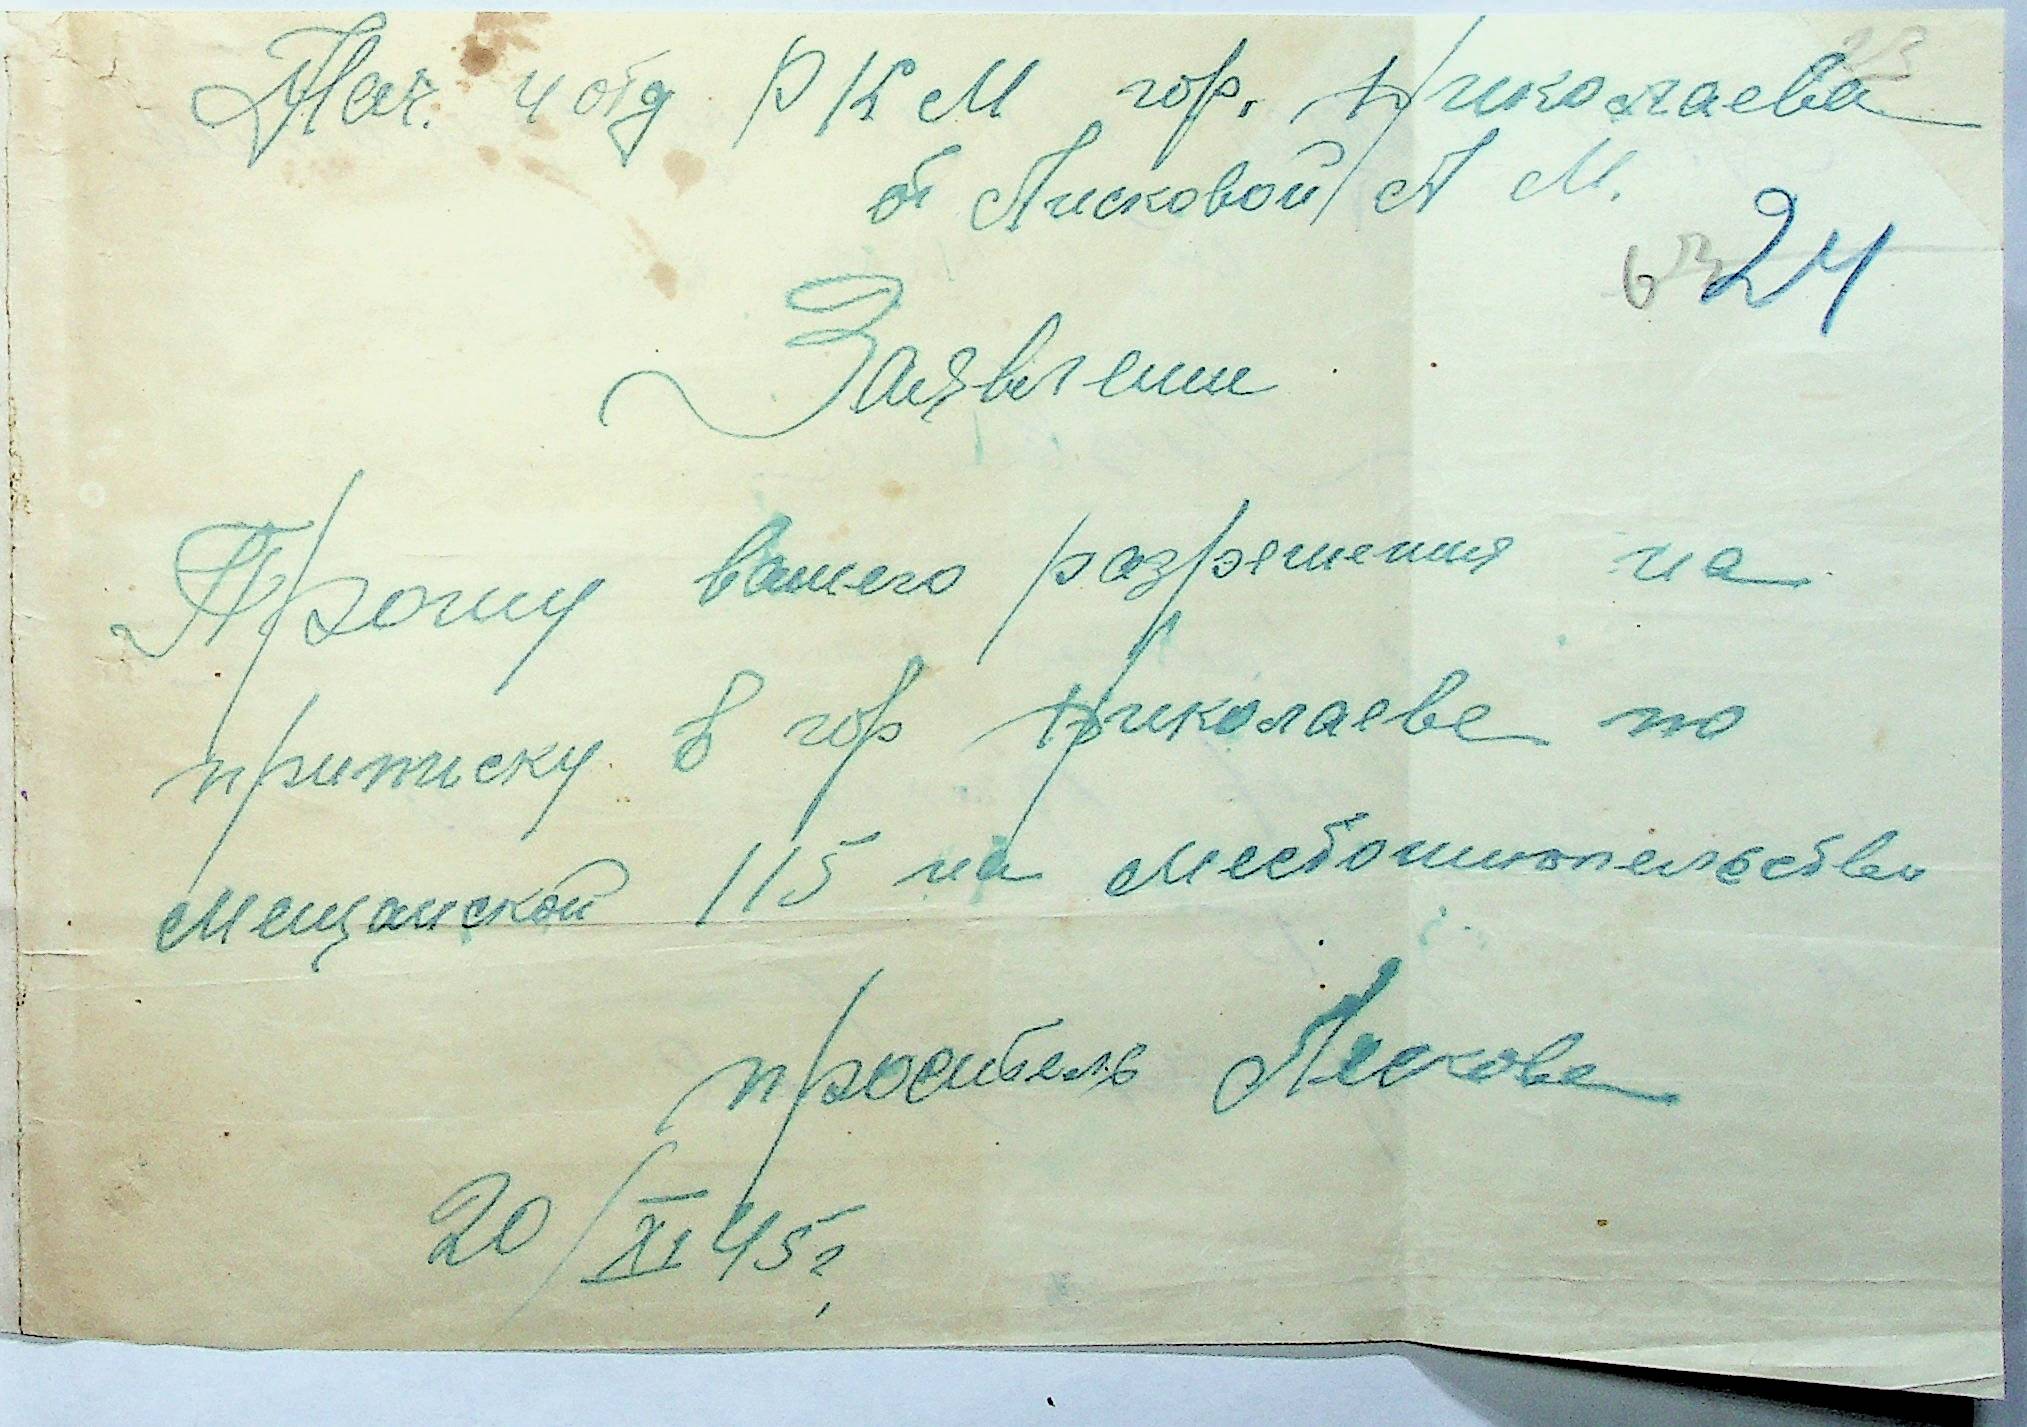 Нач. 4 отд РКМ гор. Николаева
от Лисковой А М.
24
Заявлении
Прошу вашего разрешения на
приписку в гор Николаеве по
Мещанской 115 на местожительстве
проситель Лискова
20/XI 45 г.